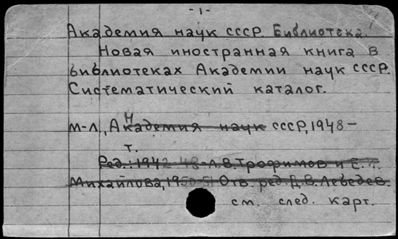 -1-
Академия наук СССР. Библиотека.
Новая иностранная книга в
библиотеках Академии наук СССР.
Систематический каталог.
М-Л., Академия наук СССР, 1948-
т.
Ред.: 1942-48-Л.В.Трофимов и Е.
Михайлова, 1950-51 Отв. ред. Д.В.Лебедев.
см. след. карт.